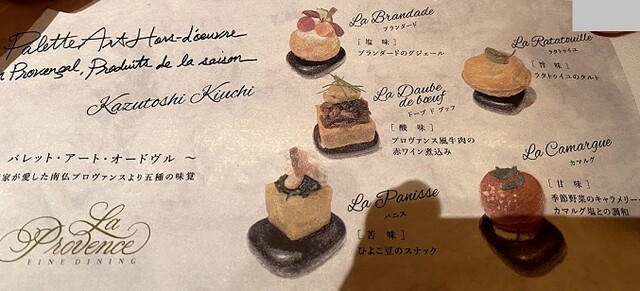 Palette Art Hors-d'œuvre
Provençal, Produits de la saison
Kazutoshi Kiuchi
パレット・アート・オードヴル ～
家が愛した南仏プロヴァンスより五種の味覚
La
Provence
FINE DINING
La Brandade
ブランダード
[ 塩 味 ]
ブランダードのグジェール
La Ratatouille
ラタトゥイユ
[ 旨 味 ]
ラタトゥイユのタルト
La Daube
de bœuf
ドーブ ド ブッフ
[ 酸 味 ]
プロヴァンス風牛肉の
赤ワイン煮込み
La Camargue
カマルグ
[ 甘 味 ]
季節野菜のキャラメリー
カマルグ塩との調和
La Panisse
パニス
[ 苦 味 ]
ひよこ豆のスナック